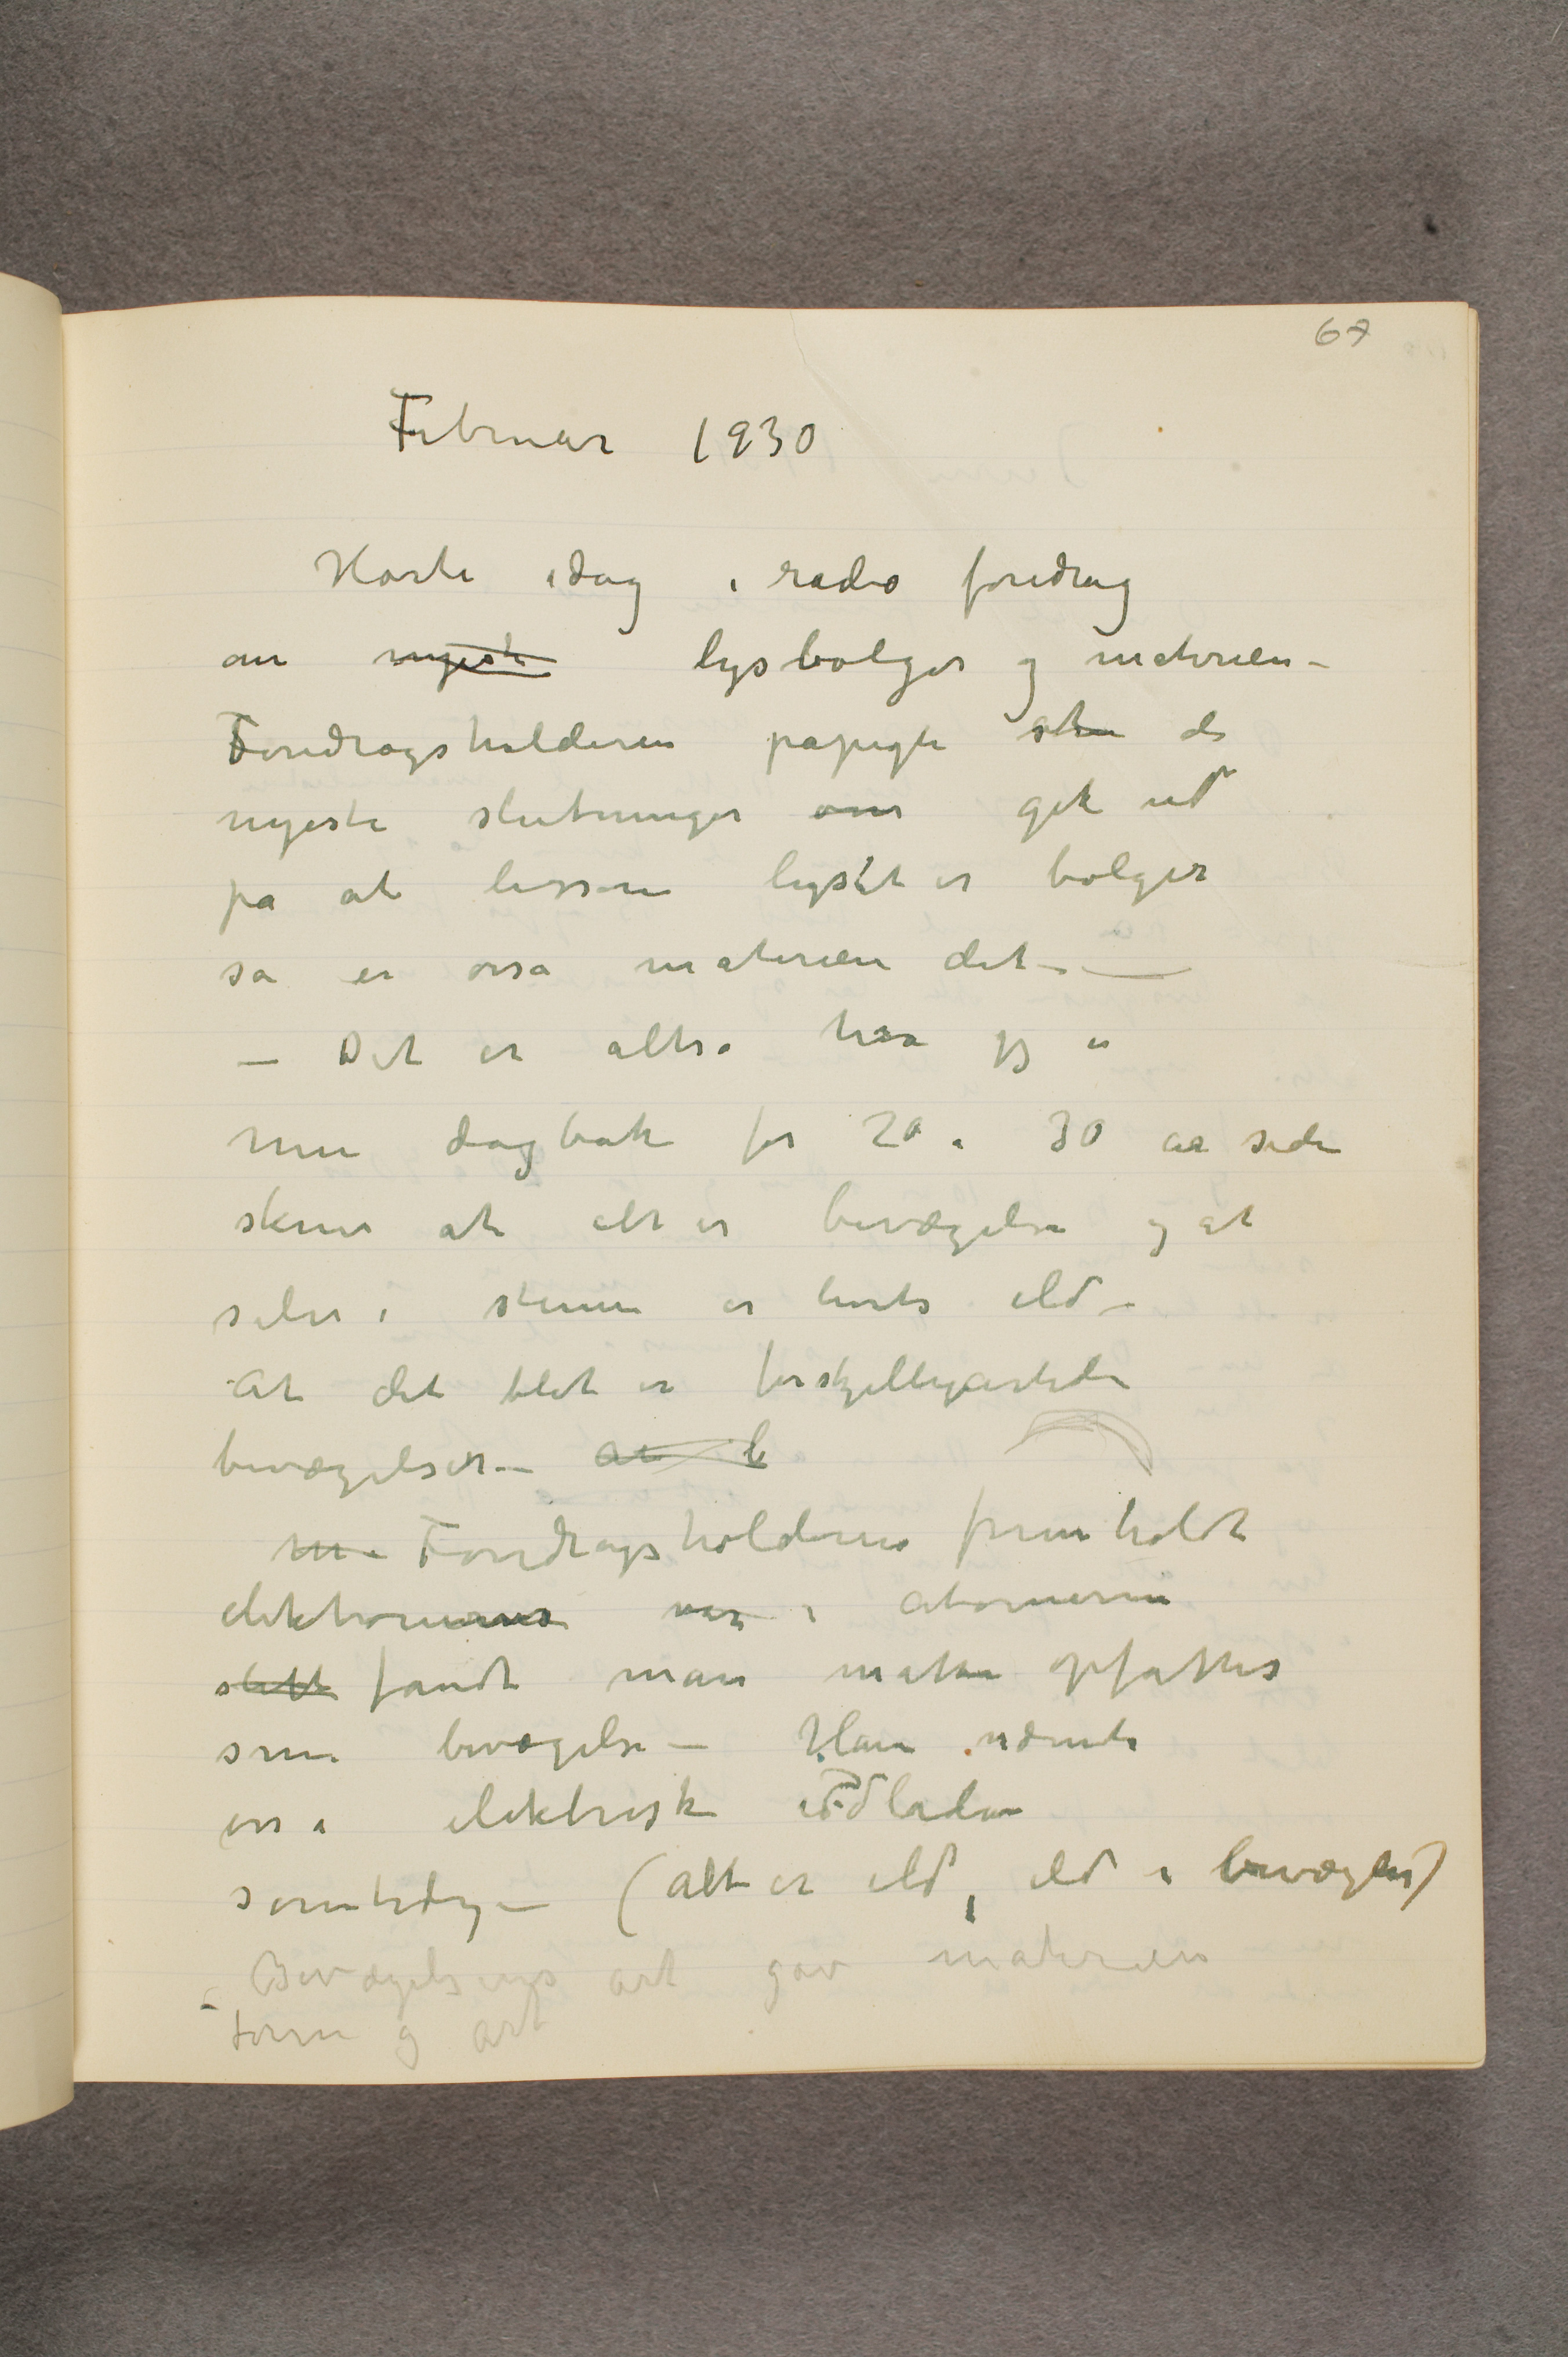 67
Februar 1930
Hørte idag i radio foredrag
om nyeste lysbølger og materien –
Foredragsholderen påpegte de
nyeste slutninger om gik ud
på at lissom lyset er bølger
så er osså materien det –
– Det er altså hva jeg i
min dagbok for 20 a 30 år siden
skrev at alt er bevægelse og at
selv i stenen er livets ild –
At det blot er forskjelligartede
bevægelser – At b
M Foredragsholderen fremholdt
elektronerne var i atomerne
fandt man måtte opfattes
som bevægelse – Han nævnte
osså elektrisk
samtidig – (alt er ild, ild i bevægelse)
– Bevægelsens art gav materien
form og art